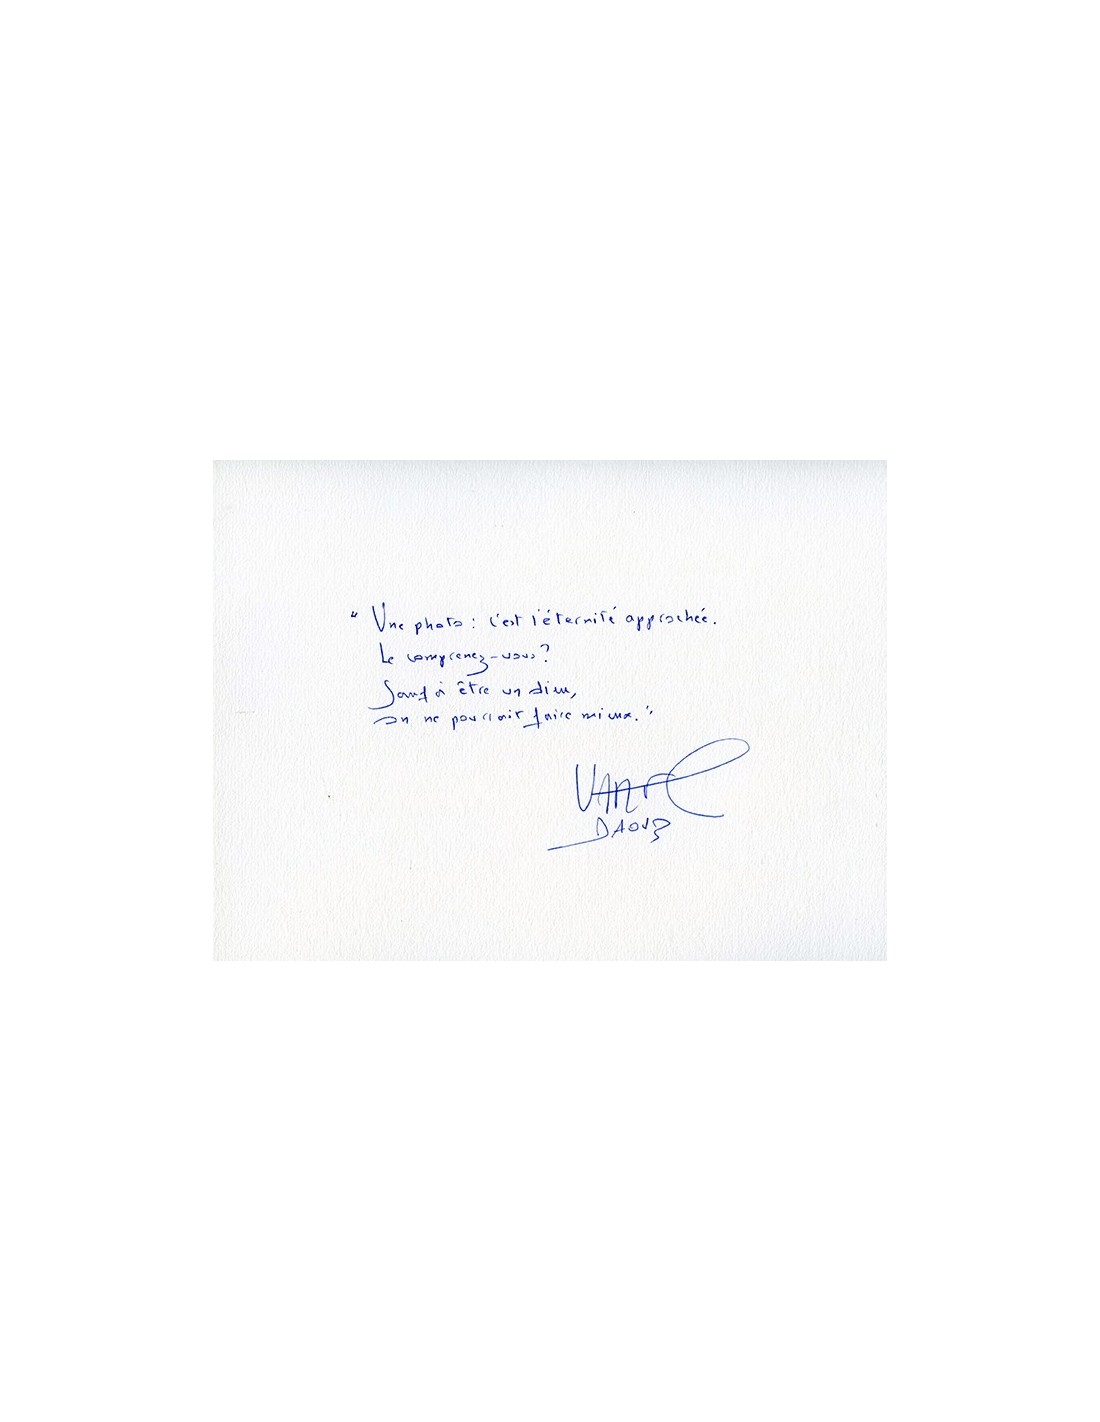 “ Une photo : c'est l'éternité approchée.
Le comprenez-vous ?
Sauf à être un dieu,
on ne pourrait faire mieux.”